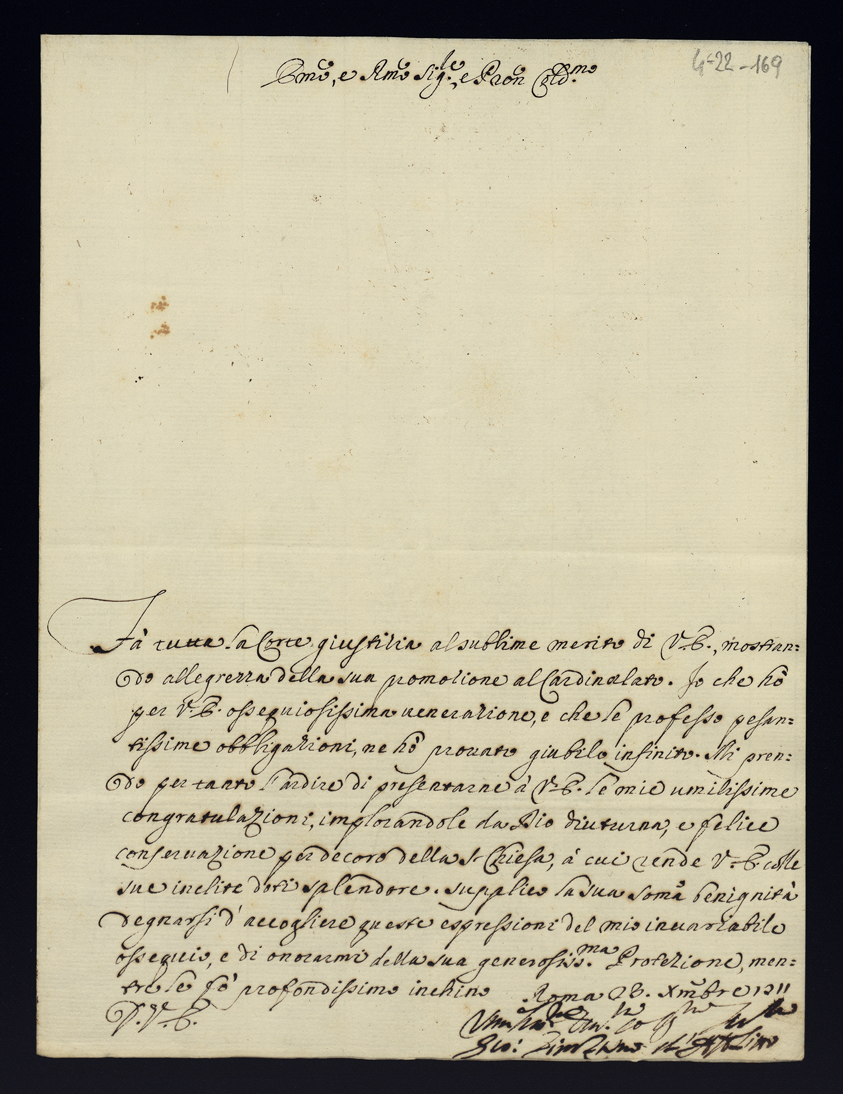 4-22-169
Emo, e Rmo Sig.re, e Pron Cold.mo
Fà tutta la Corte giustizia al sublime merito di V.E., mostran=
do allegrezza della sua promozione al Cardinalato. Io che hò
per V.E. ossequiosissima venerazione, e che le professo pesan=
tissime obbligazioni, ne hò provato giubilo infinito. Mi pren=
do per tanto l'ardire di presentarne à V.E. le mie umilissime
congratulazioni, implorandole da Dio diuturna, e felice
conservazione per decoro della S. Chiesa, à cui rende V.E. colle
sue inclite doti splendore. Supplico la sua somã benignità
degnarsi d'accogliere queste espressioni del mio invariabile
ossequio, e di onorarmi della sua generosiss.ma Protezione, men=
tre le fò profondissimo inchino
Roma 23. Xmbre 1711
D. V. E.